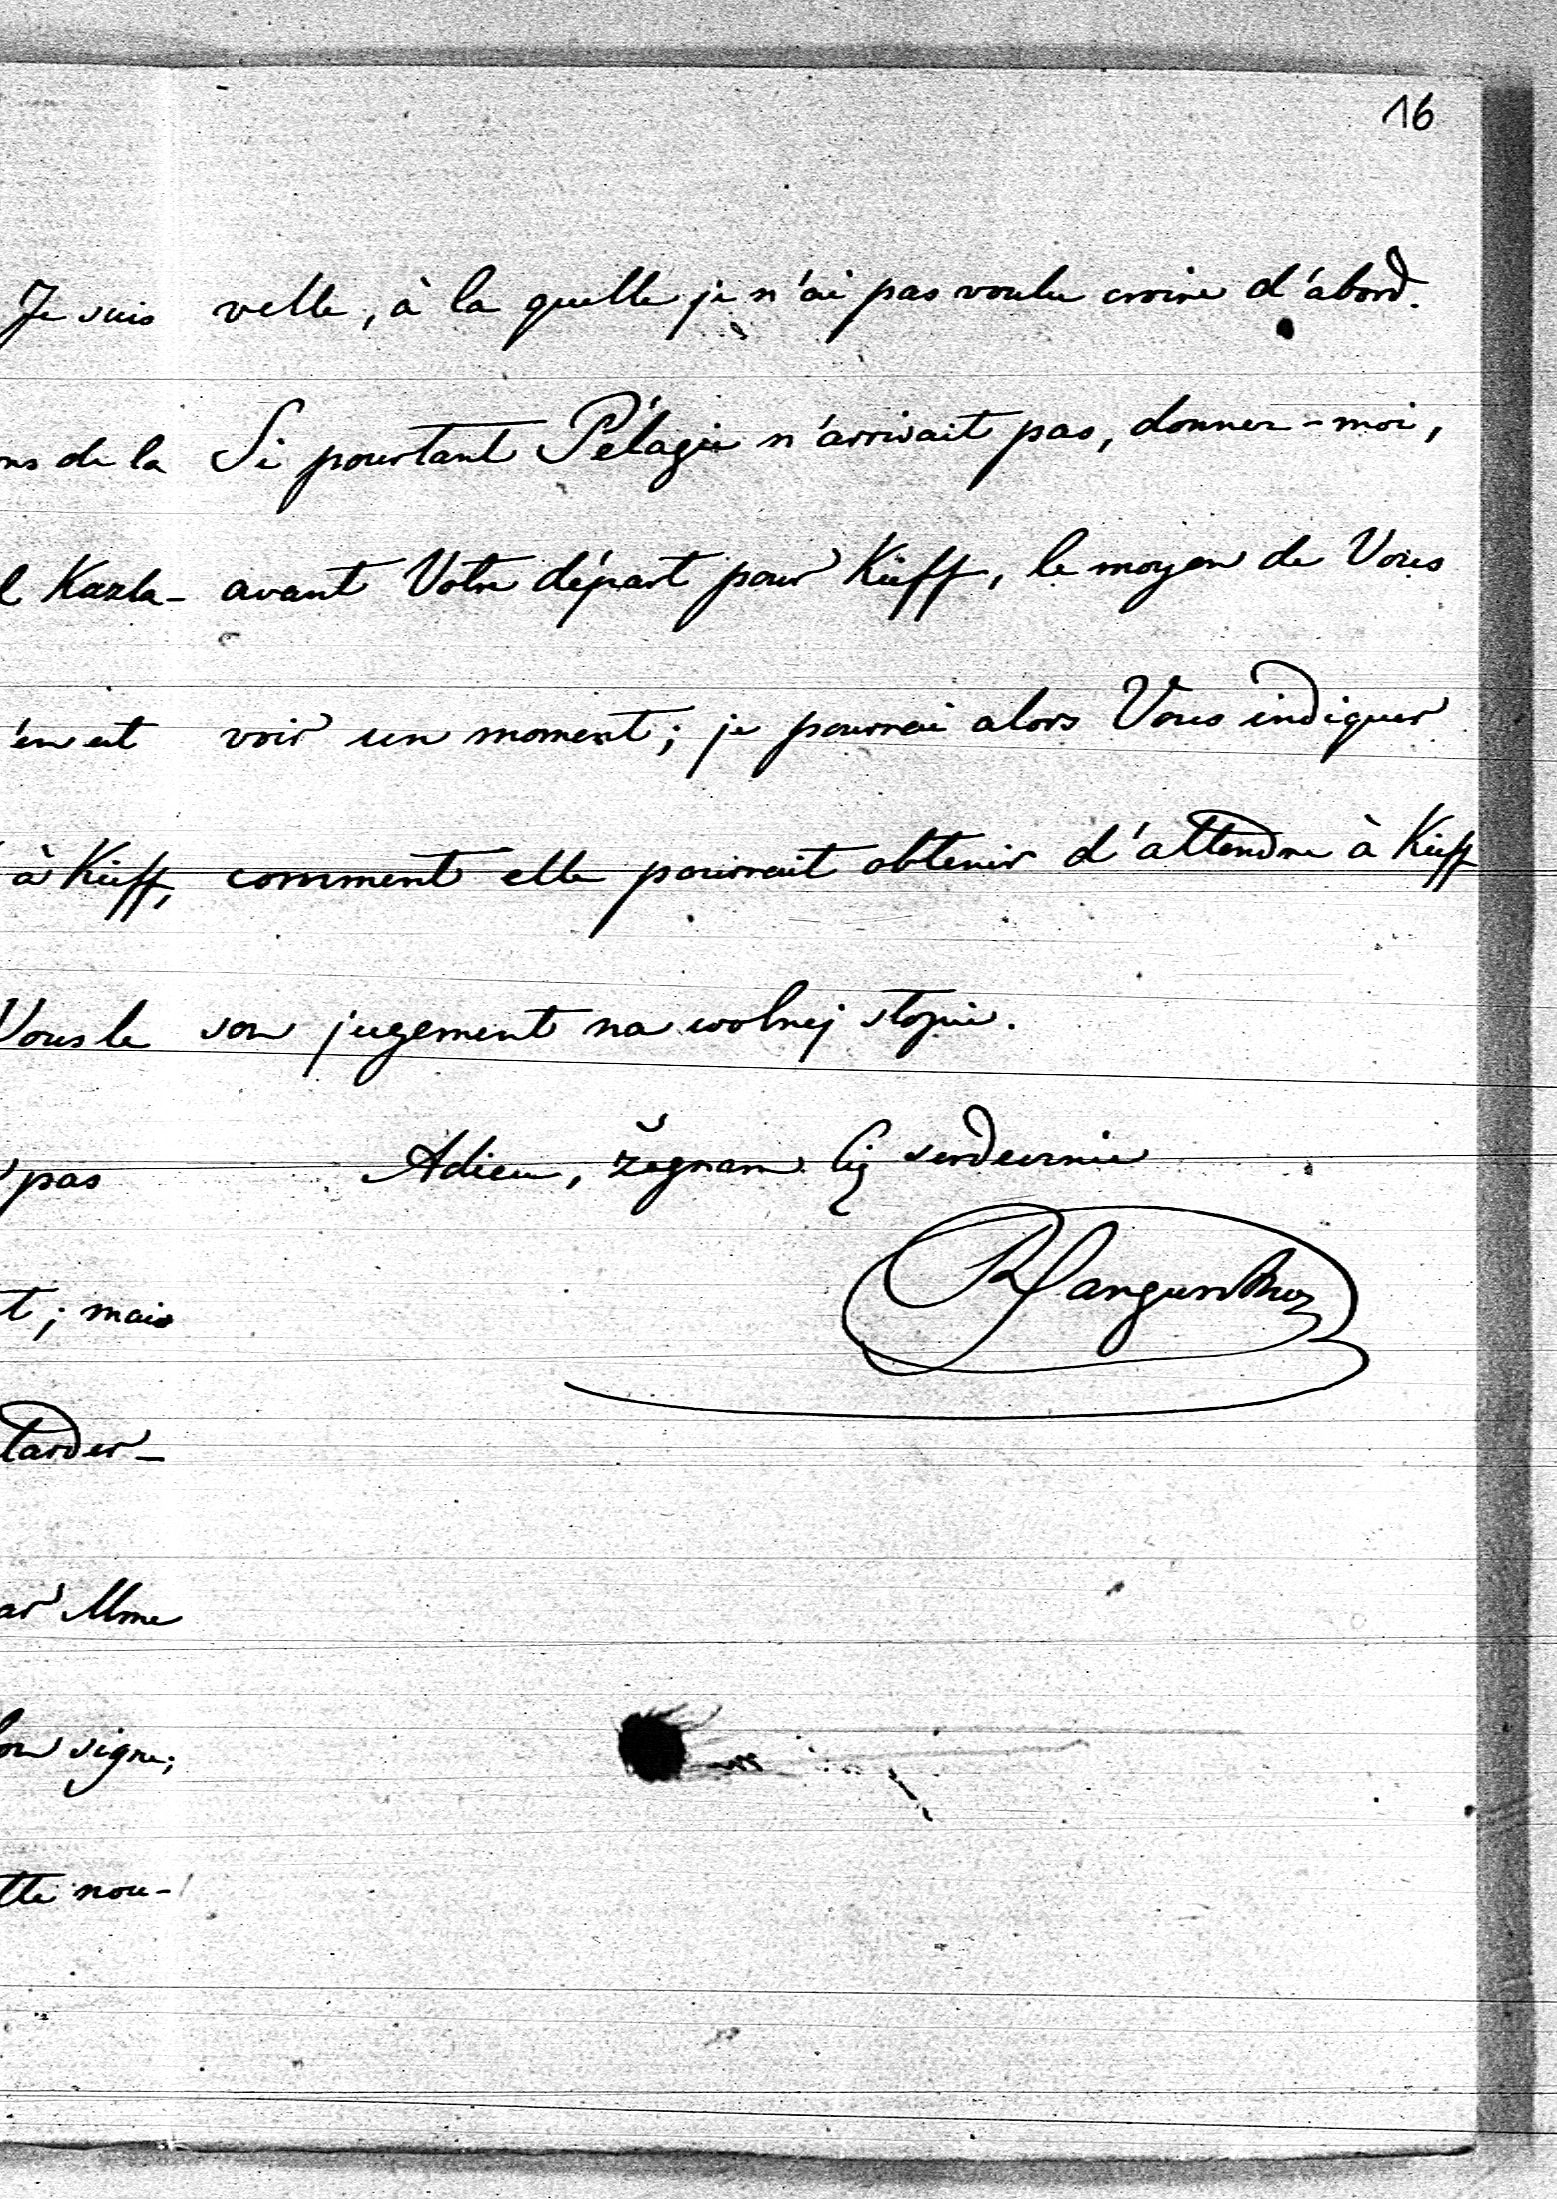 16
velle, à la quelle je n'ai pas voulu croire d'abord.
Si pourtant Pélagie n'arrivait pas, donnez-moi,
avant Votre départ pour Kieff, le moyen de Vous
voir un moment; je pourrai alors Vous indiquer
comment elle pourrait obtenir d'attendre à Kieff
son jugement na wolnej stopie.
Adieu, żegnam Cię serdecznie
Je suis
ns de la
l Kazla-
'en est
à Kieff,
Vous le
pas
t; mais
tarder-
ar Mme
bon signe;
tte nou-